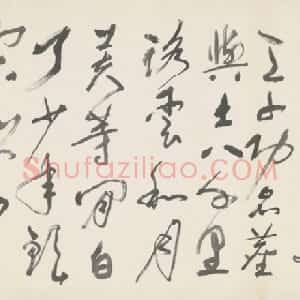 三十功名塵
與土八千里
路雲和月
莫等閒白
了少年頭
Shufaziliao.com